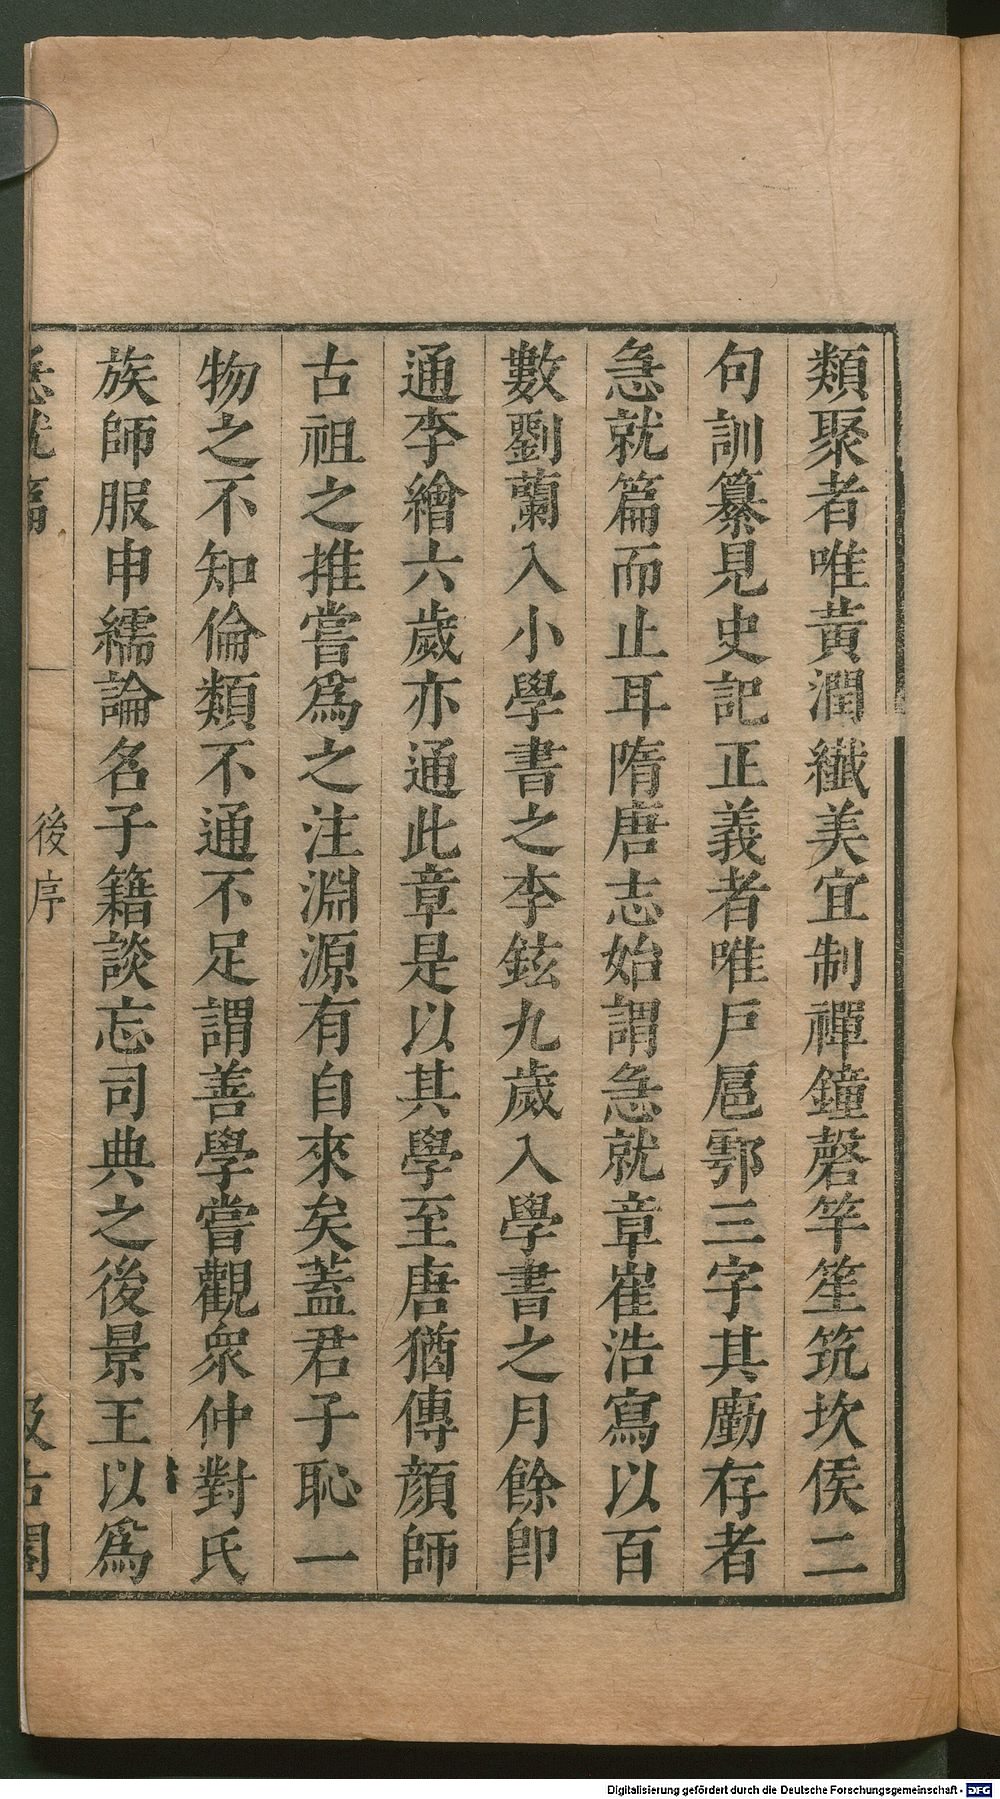 類聚者唯黄潤纎美宜制禪鐘磬竽笙筑坎侯二
句訓纂見史記正義者唯戶扈鄠三字其廑存者
急就篇而止耳隋唐志始謂急就章崔浩寫以百
數劉蘭入小學書之李鉉九歲入學書之月餘卽
通李繪六歲亦通此章是以其學至唐猶傳顔師
古祖之推嘗爲之注淵源有自來矣蓋君子恥一
物之不知倫類不通不足謂善學嘗觀衆仲對氏
族師服申繻論名子籍談忘司典之後景王以爲
急就篇 後序 汲古閣
Digitalisierung gefördert durch die Deutsche Forschungsgemeinschaft - DFG